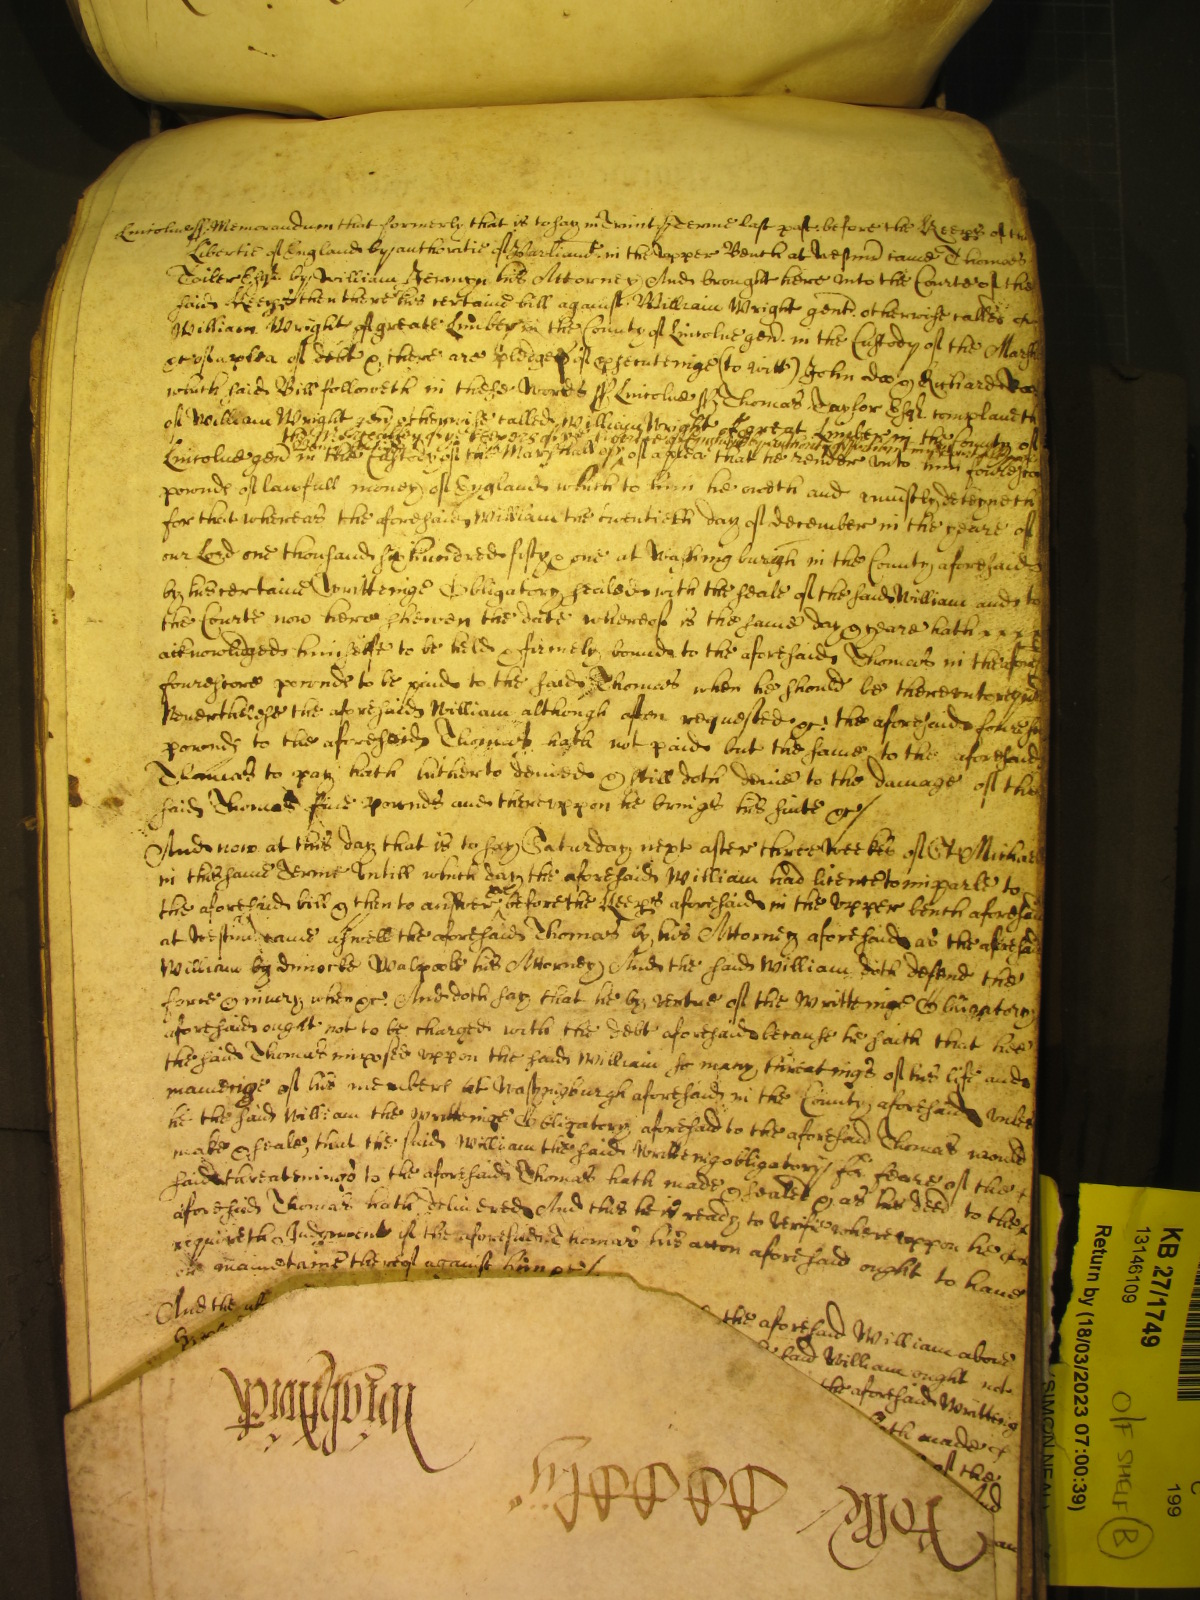 Lincolne ss. Memorandum that formerly that is to say in Trinity Terme last past before the Keeps of the
Libertie of England by authoritie of Parliamt. in the Upper Bench at Westmr came Thomas
Esqr. by William his Attorney And brought here into the Courte of the
said Keeps then there his certaine bill against William Wright gent. otherwise called
William Wright of greate Limber in the County of Lincolne gent. in the Custody of the Marsh
&c of a plea of debt & there are pledges of prosecuteinge (to witt) John doe & Richard Roe
which said Bill followeth in these words ss Lincolne ss Thomas Taylor Esqr. complaineth
of William Wright gent otherwise called William Wright of great Limber in the County of
Lincolne gent in the Custody of the Marshall &c of a plea that he render unto him fourescore
pownds of lawfull money of England which to him he oweth and uniustly deteyneth
for that whereas the aforesaid William the twentieth day of december in the yeare of
our Lord one thousand six hundred fifty & one at Washingburgh in the County aforesaid
by his certaine Writteinge Obligatory sealed with the seale of the said William and to
the Courte now here shewen the date whereof is the same day & yeare hath
acknowledged himselfe to be held & firmely bound to the aforesaid Thomas in the afores
fourescore pownds to be paid to the said Thomas when he should be thereunto requi
Neverthelesse the aforesaid William although often requested &c. the aforesaid foures
pownds to the aforesaid Thomas hath not paid but the same to the aforesaid
Thomas to pay hath hitherto denied & still doth denie to the damage of the
said Thomas five pownds and thereuppon he brings his suite &c/
And now at this day that is to say Saturday next after three weekes of St Michael
in this same Terme Untill which day the aforesaid William had licence to imparle to
the aforesaid bill & then to answer &c before the Keeps aforesaid in the Upper bench aforesaid
at Westmr came aswell the aforesaid Thomas by his Attorney aforesaid as the aforesaid
William by Walpoole his Attorney And the said William doth defend the
force & iniury when &c. And doth say that he by vertue of the Writteinge Obligatory
aforesaid ought not to be charged with the debt aforesaid because he saith that hee
the said Thomas imposed uppon the said William so many threatnings of his life and
maimeinge of his members at Washingburgh aforesaid in the County aforesaid unles
he the said William the Writteinge Obligatory aforesaid to the aforesaid Thomas would
make & seale, that the said William the said Writteing obligatory for feare of the
said threatenings to the aforesaid Thomas hath made & sealed & as his deed to the
aforesaid Thomas hath delivered And this he is ready to verifie whereuppon he
requireth Judgment if the aforesaid Thomas his accon aforesaid ought to have
or mainetaine thereof against him &c/
And the
the aforesaid William above
said William ought not
the aforesaid Writteing
hath made &
of the
Rolle
KB 27/1749
13146109
Return by (18/03/2023 07:00:39)
O/F SHELF B
199
SIMON NEAL